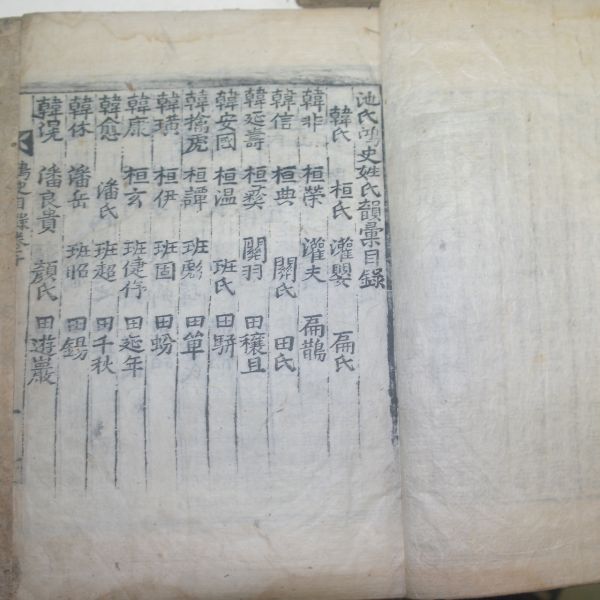 池氏鴻史姓氏韻彙目錄
韓氏 桓氏 灌嬰 扁氏
韓非 桓榮 灌夫 扁鵲
韓信 桓典 關氏 田氏
韓延壽 桓彛 關羽 田穰苴
韓安國 桓溫 班氏 田駢
韓擒虎 桓譚 班彪 田單
韓璜 桓伊 班固 田蚡
韓康 桓玄 班倢伃 田延年
韓愈 潘氏 班超 田千秋
韓休 潘岳 班昭 田錫
韓滉 潘良貴 顔氏 田遊巖
鴻史目錄卷